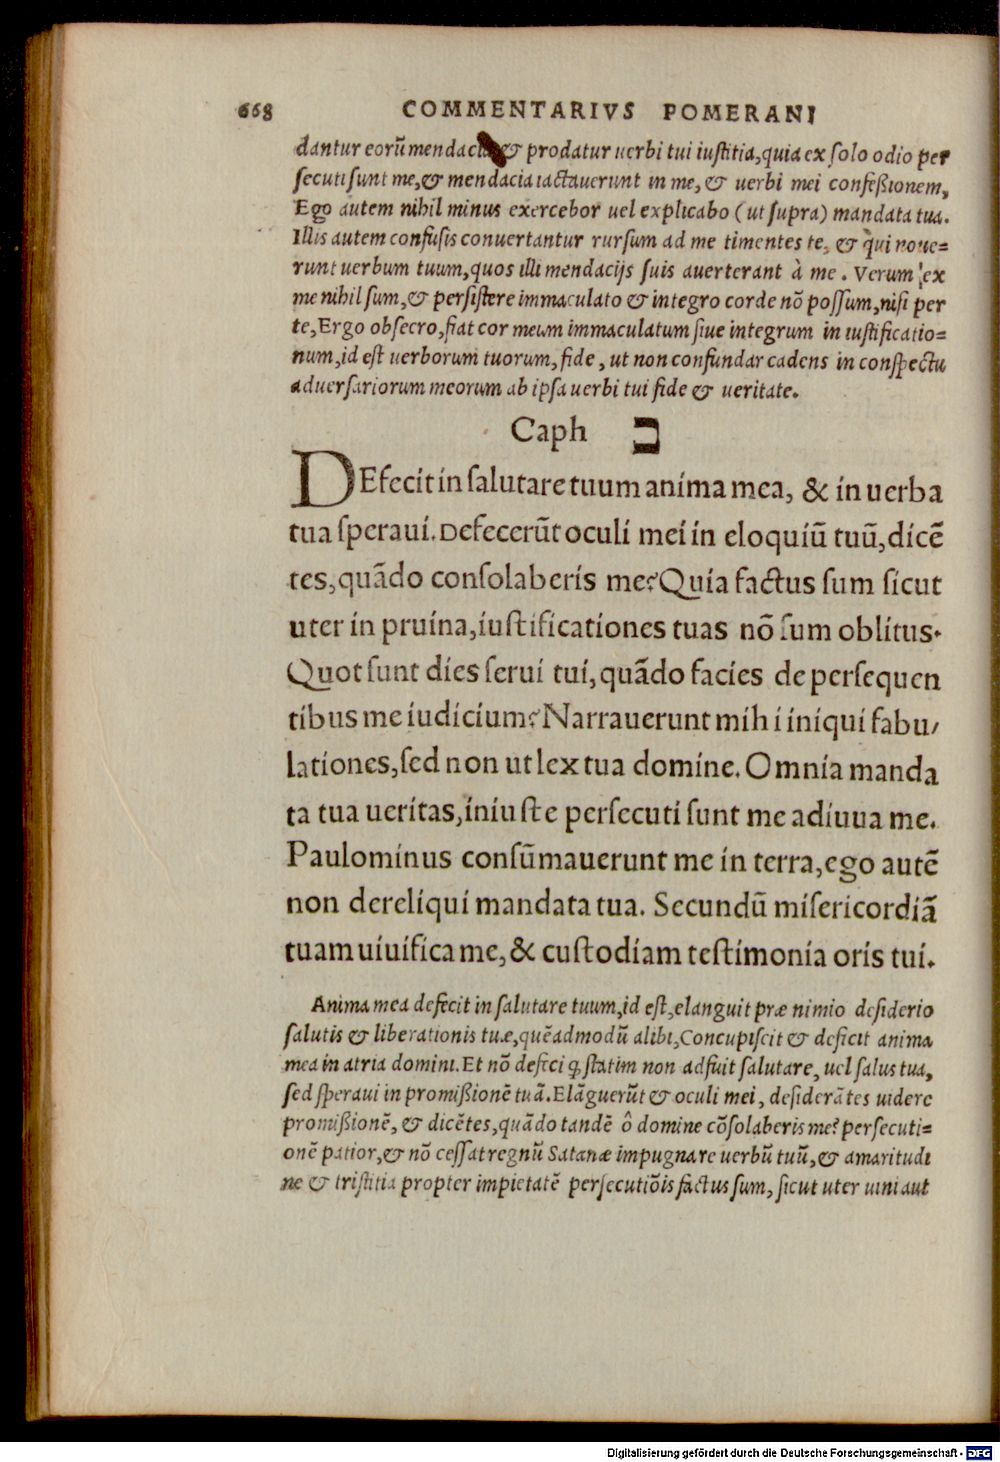 668 COMMENTARIVS POMERANI
dantur eorũ mendacia & prodatur uerbi tui iustitia, quia ex solo odio per
secuti sunt me, & mendacia iactauerunt in me, & uerbi mei confeßionem,
Ego autem nihil minus exercebor uel explicabo (ut supra) mandata tua.
Illis autem confusis conuertantur rursum ad me timentes te, & qui noue=
runt uerbum tuum, quos illi mendacijs suis auerterant à me. Verum ex
me nihil sum, & persistere immaculato & integro corde nõ possum, nisi per
te, Ergo obsecro, fiat cor meum immaculatum siue integrum in iustificatio=
num, id est uerborum tuorum, fide, ut non confundar cadens in conspectu
aduersariorum meorum ab ipsa uerbi tui fide & ueritate.
Caph כ
DEfecit in salutare tuum anima mea, & in uerba
tua speraui. Defecerũt oculi mei in eloquiũ tuũ, dicẽ
tes, quãdo consolaberis me? Quia factus sum sicut
uter in pruina, iustificationes tuas nõ sum oblitus.
Quot sunt dies serui tui, quãdo facies de persequen
tibus me iudicium? Narrauerunt mihi iniqui fabu/
lationes, sed non ut lex tua domine. Omnia manda
ta tua ueritas, iniuste persecuti sunt me adiuua me.
Paulominus consũmauerunt me in terra, ego autẽ
non dereliqui mandata tua. Secundũ misericordiã
tuam uiuifica me, & custodiam testimonia oris tui.
Anima mea defecit in salutare tuum, id est, elanguit præ nimio desiderio
salutis & liberationis tuæ, quẽadmodũ alibi, Concupiscit & deficit anima
mea in atria domini. Et nõ defeci ꝙ statim non adfuit salutare, uel salus tua,
sed speraui in promißionẽ tuã. Elãguerũt & oculi mei, desiderãtes uidere
promißionẽ, & dicẽtes, quãdo tandẽ ô domine cõsolaberis me? persecuti=
onẽ patior, & nõ cessat regnũ Satanæ impugnare uerbũ tuũ, & amaritudi
ne & tristitia propter impietatẽ persecutiõis factus sum, sicut uter uini aut
Digitalisierung gefördert durch die Deutsche Forschungsgemeinschaft - DFG